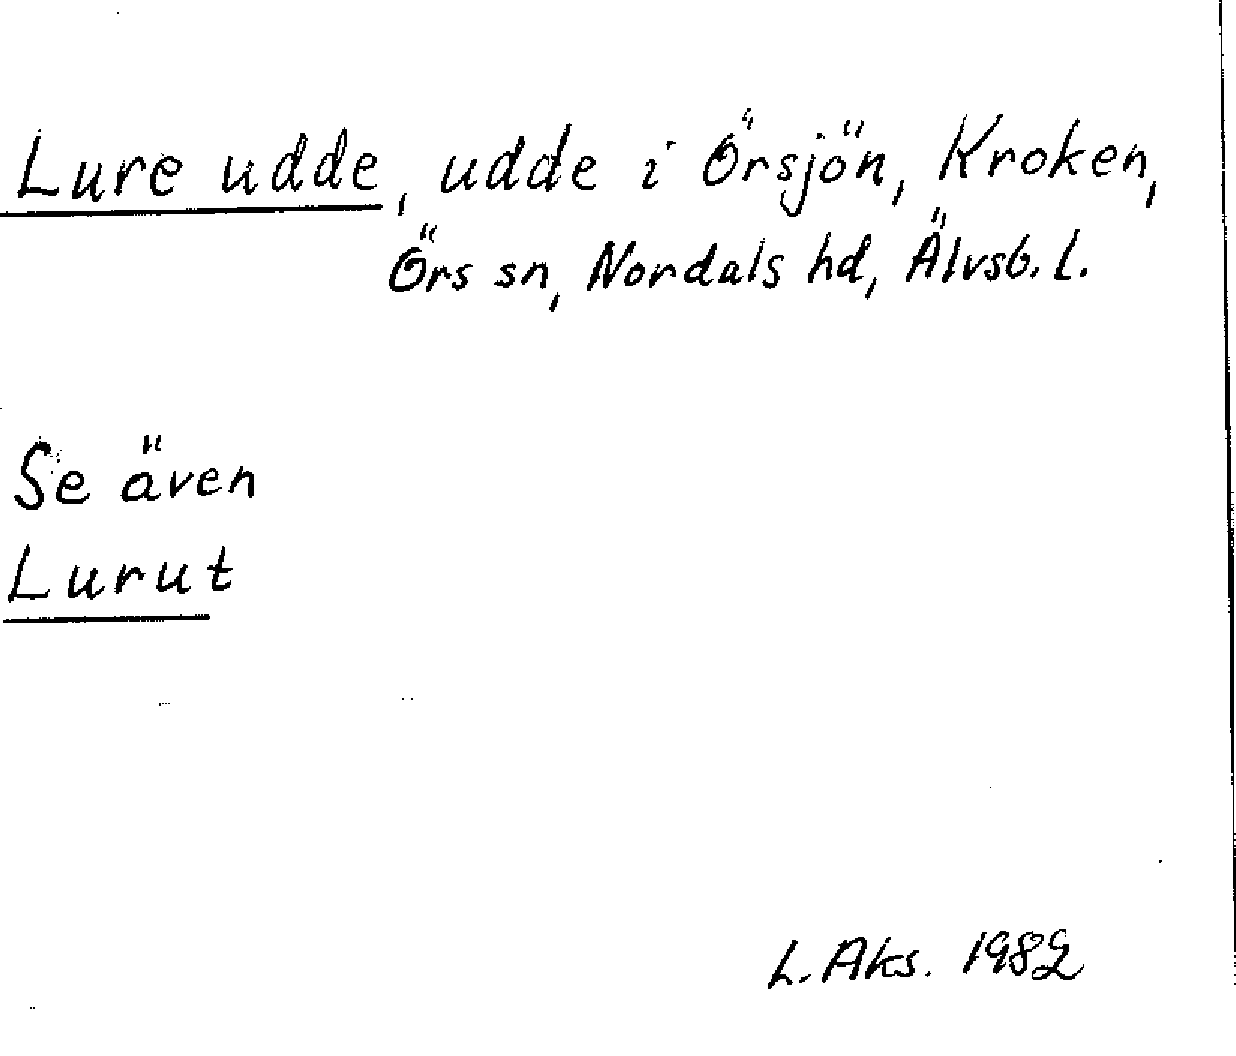 Lure udde, udde i Örsjön, Kroken,
Örs sn, Nordals hd, Älvsb. l.
Se även
Lurut
L. Aks. 1982